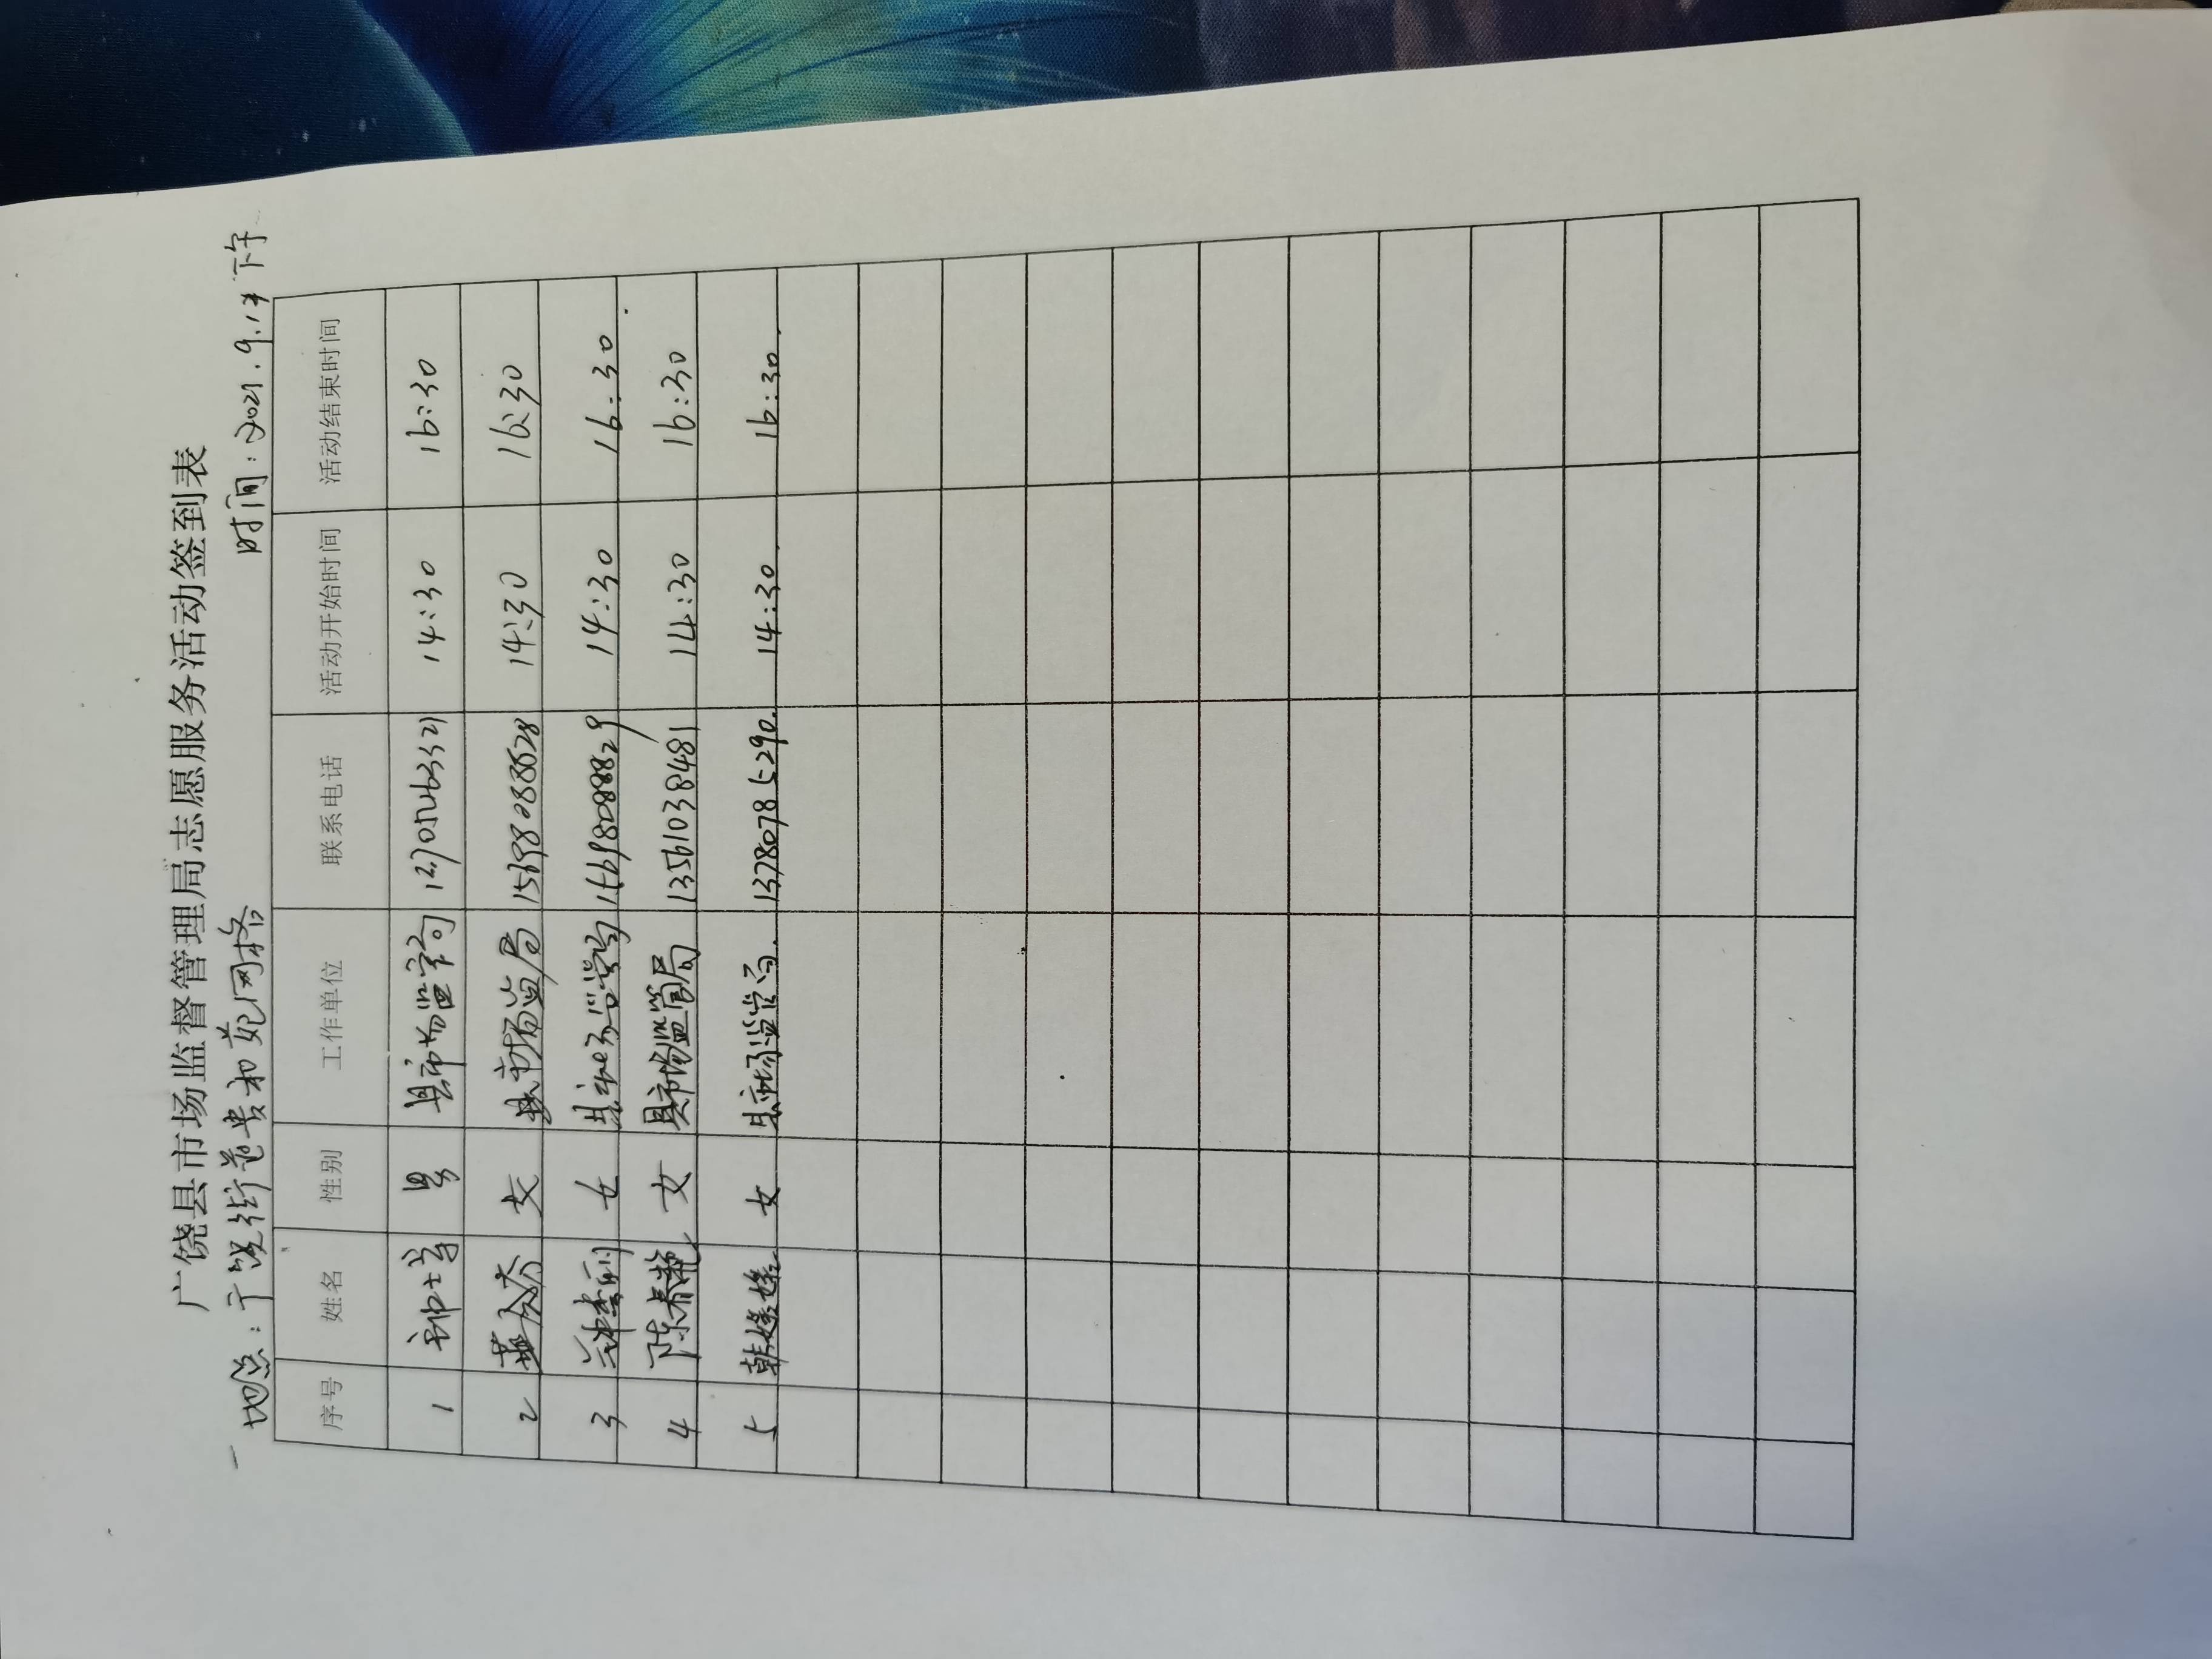 广饶县市场监督管理局志愿服务活动签到表
地点：广饶街道贵和苑网格 时间：2021.9.17 下午
序号 姓名 性别 工作单位 联系电话 活动开始时间 活动结束时间
1 男 县市场监管局 14:30 16:30
2 女 县市场监局 14:30 16:30
3 女 县市场监管局 14:30 16:30
4 陈春艳 女 县市场监管局 13561038481 14:30 16:30
5 韩媛媛 女 县市场监管局 13780785290 14:30 16:30